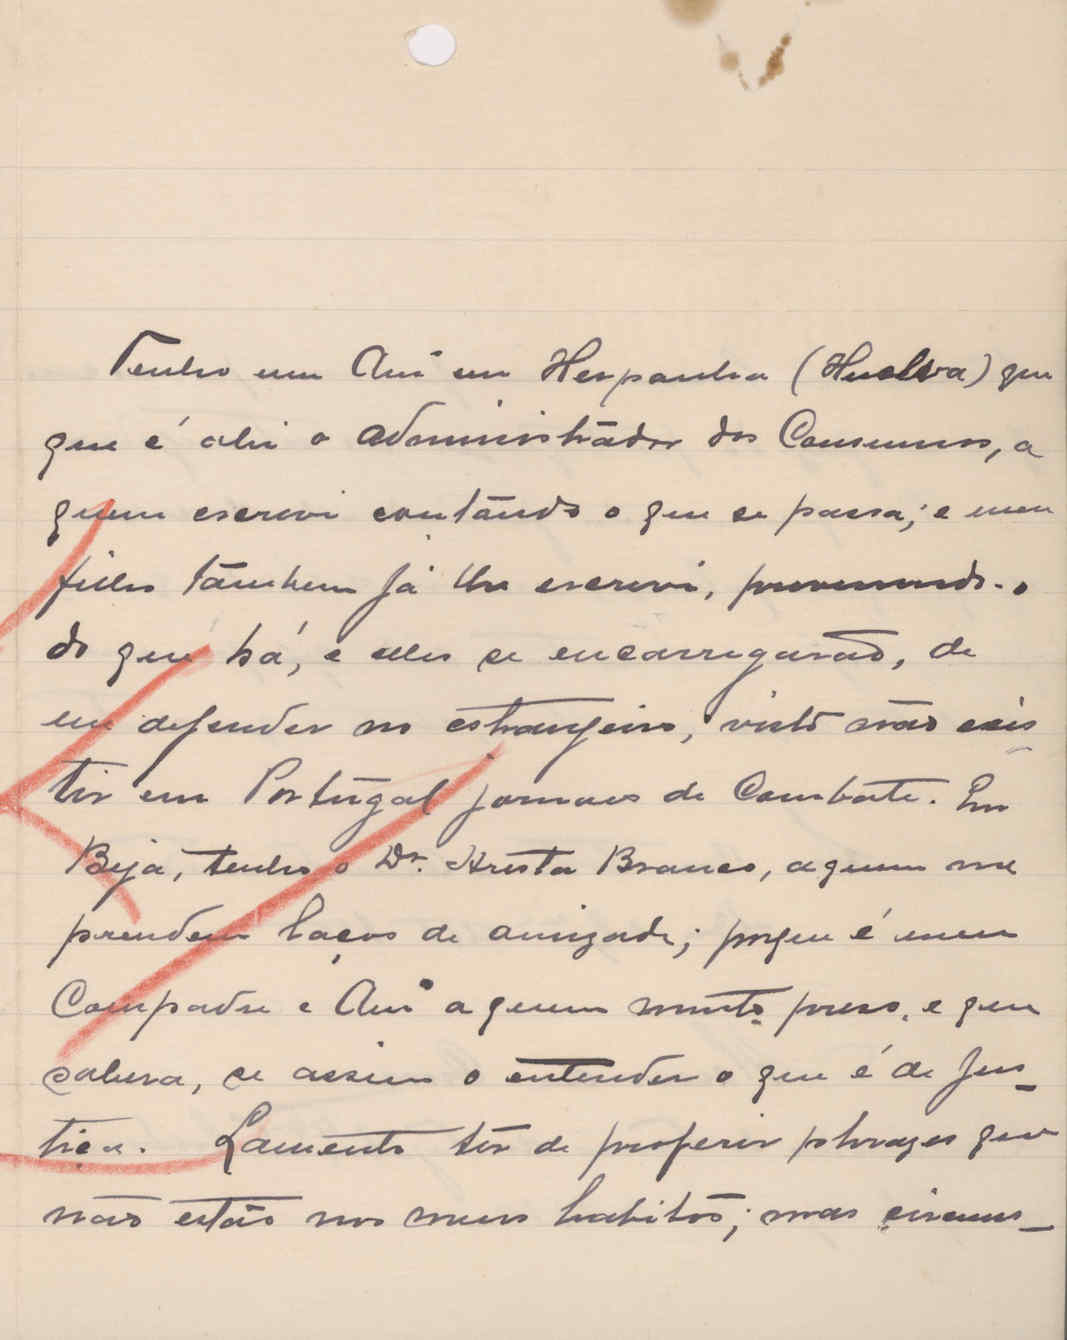 Tenho um Ami em Hespanha (Huelva) que
que é ahi o Administrador dos Consumos, a
quem escrevi contando o que se passa; e meu
filho támbem já lhe escrevi, prevenindo-o
do que há, e elles se encarregarão, de
me defender no estrangeiro, visto não exis
tir em Portugal jornaes de Combate. Em
Beja, tenho o Dr. Aresta Branco, a quem me
prendem laços de amizade; porque é meu
Compadre e Amº a quem muito preso, e que
sabera, se assim o entender o que é de Jus_
tiça. Lamento ter de proferir phrazes que
não estão nos meus habitos; mas circums_